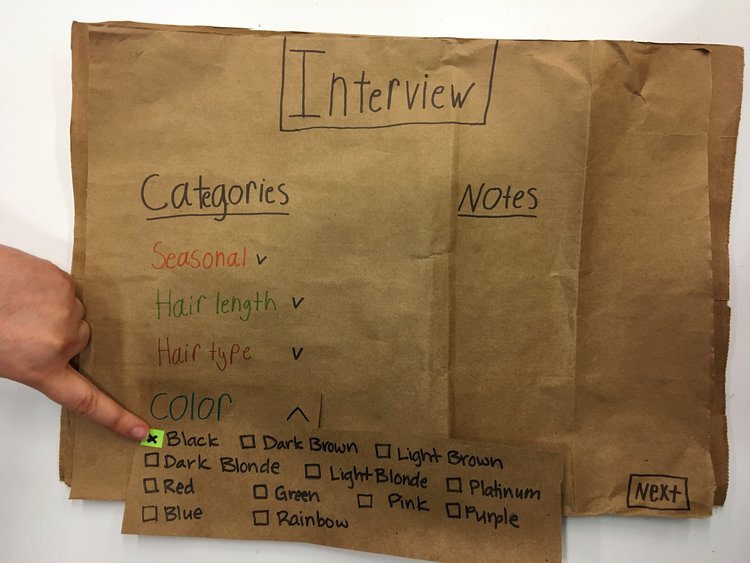 Interview
Categories Notes
Seasonal v
Hair length v
Hair type v
Color ^
x Black Dark Brown Light Brown
Dark Blonde Light Blonde Platinum
Red Green Pink Purple
Blue Rainbow
Next